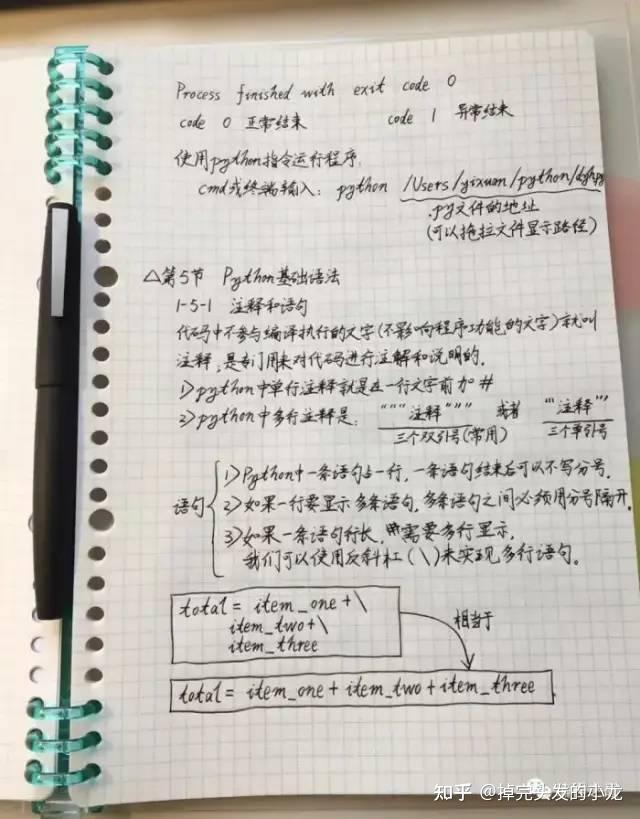 Process finished with exit code 0
code 0 正常结束 code 1 异常结束
使用python指令运行程序.
cmd或终端输入: python /Users/yixuan/python/
.py文件的地址
(可以拖拉文件显示路径)
△第5节 Python基础语法
1-5-1 注释和语句
代码中不参与编译执行的文字(不影响程序功能的文字)就叫
注释,是专门用来对代码进行注解和说明的.
1>python中单行注释就是在一行文字前加 #
2>python中多行注释是: """注释""" 或者 '''注释'''
三个双引号(常用) 三个单引号
语句
1>Python中一条语句占一行,一条语句结束后可以不写分号.
2>如果一行要显示多条语句,多条语句之间必须用分号隔开.
3>如果一条语句行长,需要多行显示,
我们可以使用反斜杠(\)来实现多行语句。
total = item_one +\
item_two +\
item_three
相当于
total = item_one + item_two + item_three
知乎 @掉完头发的小龙